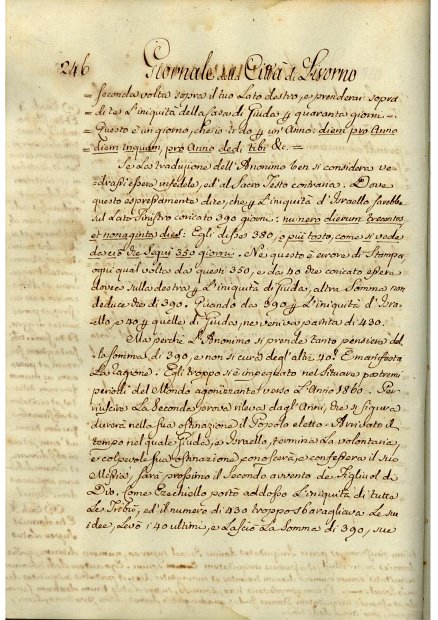 246 Giornale della Città di Livorno
= seconda volta sopra il tuo Lato destro, e prenderai sopra
= di te L'iniquità della Casa di Giuda p quaranta giorni. =
= Questo è un giorno, che io ti do p un'Anno: diem pro Anno
diem inquam, pro Anno dedi tibi &c. =
Se La traduzione dell'Anonimo ben si considera ve-
-drassi essere infedele, ed al Sacro Testo contraria. Dove
questo espressamente dice, che p L'iniquità d'Israello sarebbe
sul Lato sinistro coricato 390 giorni: numero dierum trecentos
et nonaginta dies: Egli disse 380, o più tosto, come si vede
da ciò che segui 350 giorni. Ne questo è errore di Stampa,
ogni qual volta da questi 350, e da 40 che coricato essere
doveva sulla destra p L'iniquità di Giuda, altra Somma non
deduce che di 390. Quando da 390 p L'iniquità d'Isra-
ello, e 40 p quelle di Giuda, ne veniva partita di 430.
Ma perchè L'Anonimo si prende tanto pensiero del-
-la somma di 390, e non si cura degl'altri 40? È manifesta
La ragione. Egli troppo si è impegnato nel situare gl'estremi
periodi del Mondo agonizzante verso L'Anno 1860. Per
riuscire La Seconda prova rileva dagl'Anni, che si figura
durerà nella sua ostinazione il Popolo eletto. Arrivato il
tempo nel quale Giuda, e Israello, termina La volontaria,
e colpevole sua ostinazione conoscerà, e confesserà il suo
Messia, sarà prossimo il Secondo avvento de Figliuol di
Dio. Come Ezechiello portò addosso L'iniquità di tutte
Le Tribù, ed il numero di 430 troppo sbaragliava Le sue
idee, Levò i 40 ultimi, e Lasciò La Somma di 390, sue